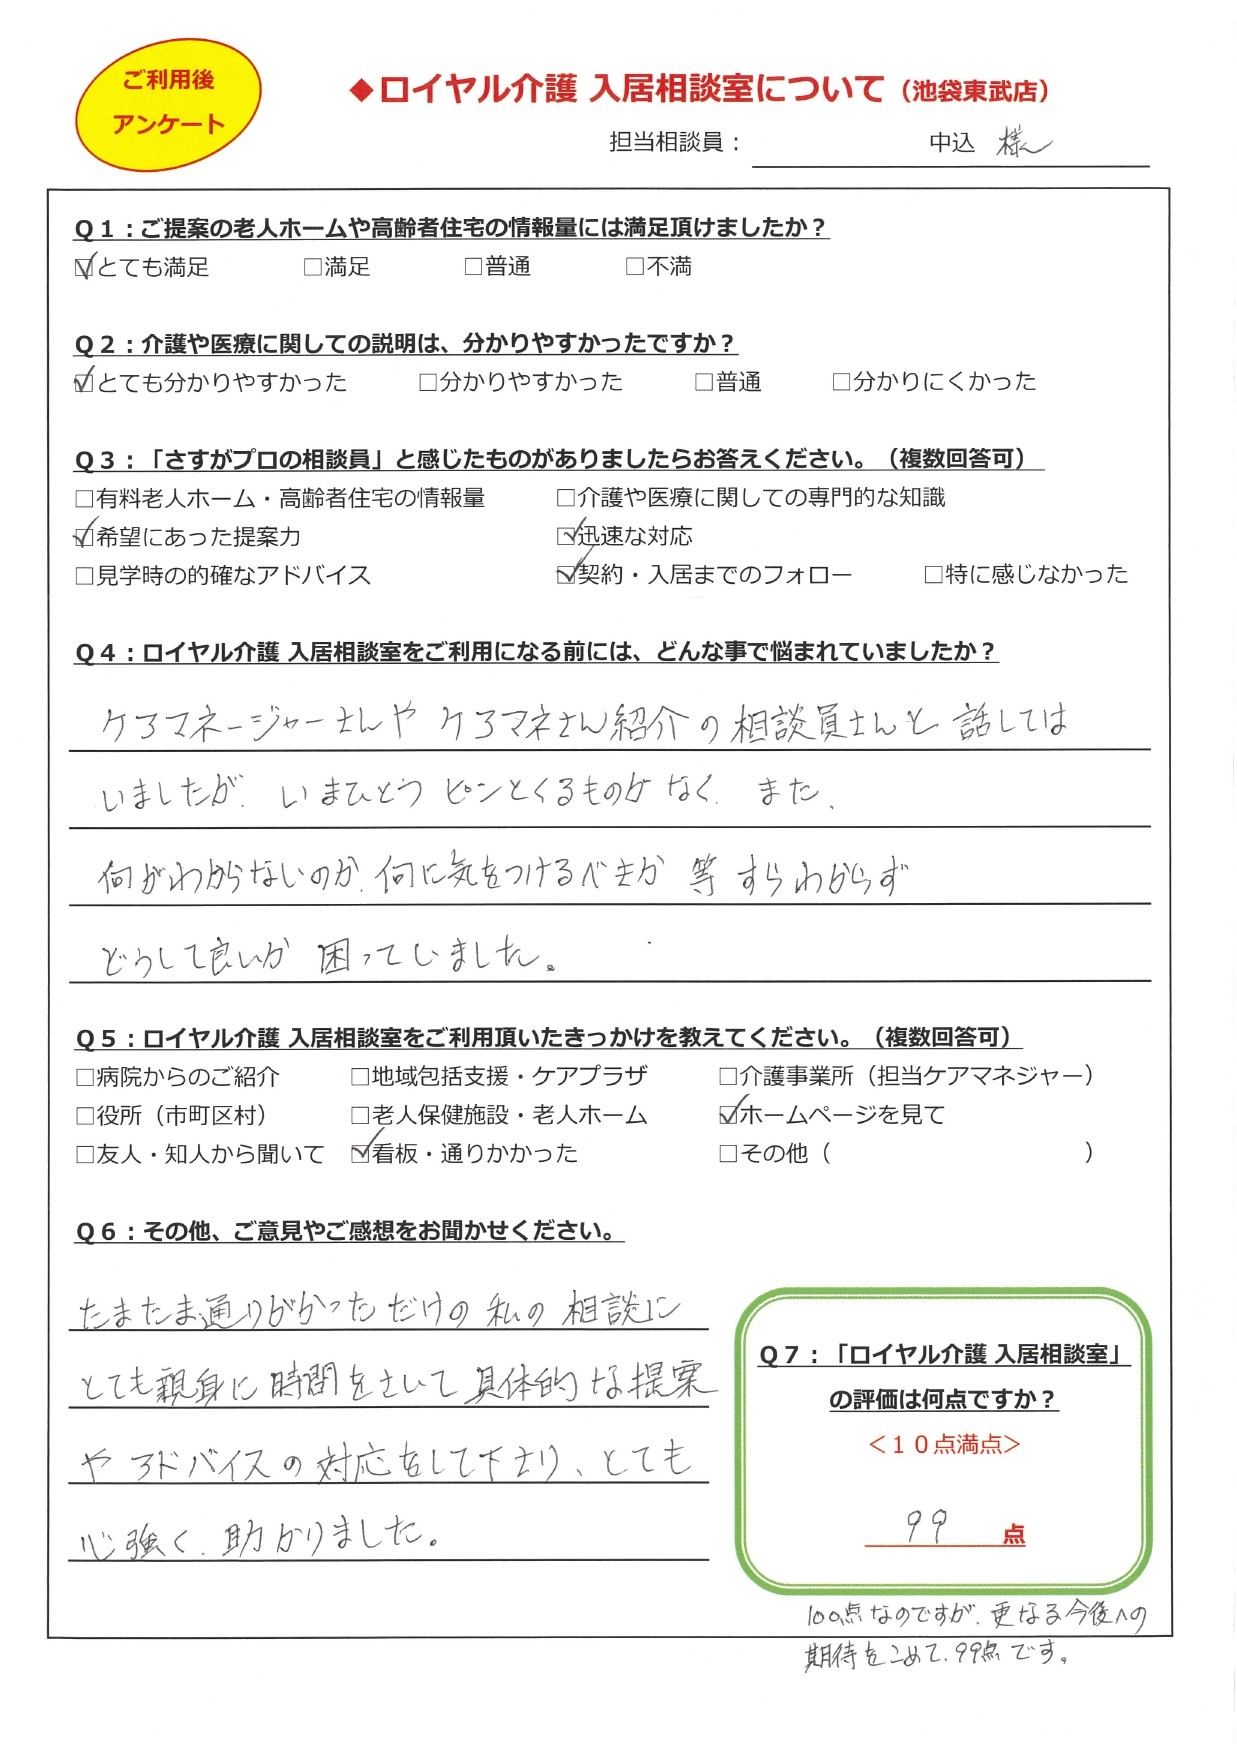 ご利用後
アンケート
◆ロイヤル介護 入居相談室について（池袋東武店）
担当相談員： 中込 様
Ｑ１：ご提案の老人ホームや高齢者住宅の情報量には満足頂けましたか？
☑とても満足 □満足 □普通 □不満
Ｑ２：介護や医療に関しての説明は、分かりやすかったですか？
☑とても分かりやすかった □分かりやすかった □普通 □分かりにくかった
Ｑ３：「さすがプロの相談員」と感じたものがありましたらお答えください。（複数回答可）
□有料老人ホーム・高齢者住宅の情報量 □介護や医療に関しての専門的な知識
☑希望にあった提案力 ☑迅速な対応
□見学時の的確なアドバイス ☑契約・入居までのフォロー □特に感じなかった
Ｑ４：ロイヤル介護 入居相談室をご利用になる前には、どんな事で悩まれていましたか？
ケアマネージャーさんや ケアマネさん紹介の相談員さんと 話しては
いましたが、いまひとつ ピンとくるものがなく、また、
何がわからないのか、何に気をつけるべきか 等 すらわからず
どうして良いか 困っていました。
Ｑ５：ロイヤル介護 入居相談室をご利用頂いたきっかけを教えてください。（複数回答可）
□病院からのご紹介 □地域包括支援・ケアプラザ □介護事業所（担当ケアマネジャー）
□役所（市町区村） □老人保健施設・老人ホーム ☑ホームページを見て
□友人・知人から聞いて ☑看板・通りかかった □その他（ ）
Ｑ６：その他、ご意見やご感想をお聞かせください。
たまたま通りがかっただけの 私の 相談に
とても親身に 時間をさいて 具体的な提案
や アドバイスの対応をして下さり、とても
心強く、助かりました。
Ｑ７：「ロイヤル介護 入居相談室」
の評価は何点ですか？
＜１０点満点＞
99 点
100点なのですが、更なる今後への
期待をこめて、99点です。